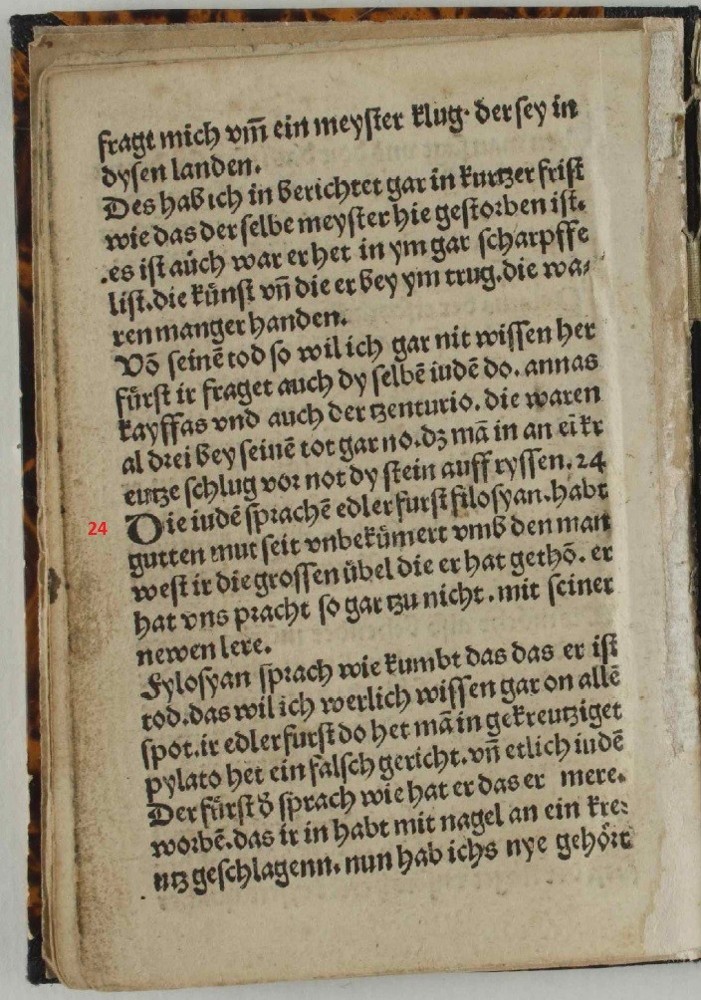 fragt mich vm̄ ein meyster klug· der sey in
dysen landen.
Des hab ich in berichtet gar in kurtzer frist
wie das der selbe meyster hie gestorben ist.
.es ist auch war er het in ym gar scharpffe
list.die kűnst vn̄ die er bey ym trug.die wa⸗
ren manger handen.
Vō seinē tod so wil ich gar nit wissen her
fűrst ir fraget auch dy selbē iudē do. annas
kayffas vnd auch der tzenturio. die waren
al drei bey seinē tot gar no.dz mā in an ei kr
eutze schlug vor not dy stein auff ryssen. 24
24 Die iudē sprachē edler furst filosyan.habt
gutten mut seit vnbekűmert vmb den man
west ir die grossen űbel die er hat gethō. er
hat vns pracht so gar tzu nicht. mit seiner
newen lere.
Fylosyan sprach wie kumbt das das er ist
tod.das wil ich werlich wissen gar on allē
spot.ir edler furst do het mā in gekreutziget
pylato het ein falsch gericht.vn̄ etlich iudē
Der fűrst d̄ sprach wie hat er das er mere.
worbē.das ir in habt mit nagel an ein kre⸗
utz geschlagenn. nun hab ichs nye gehőrt